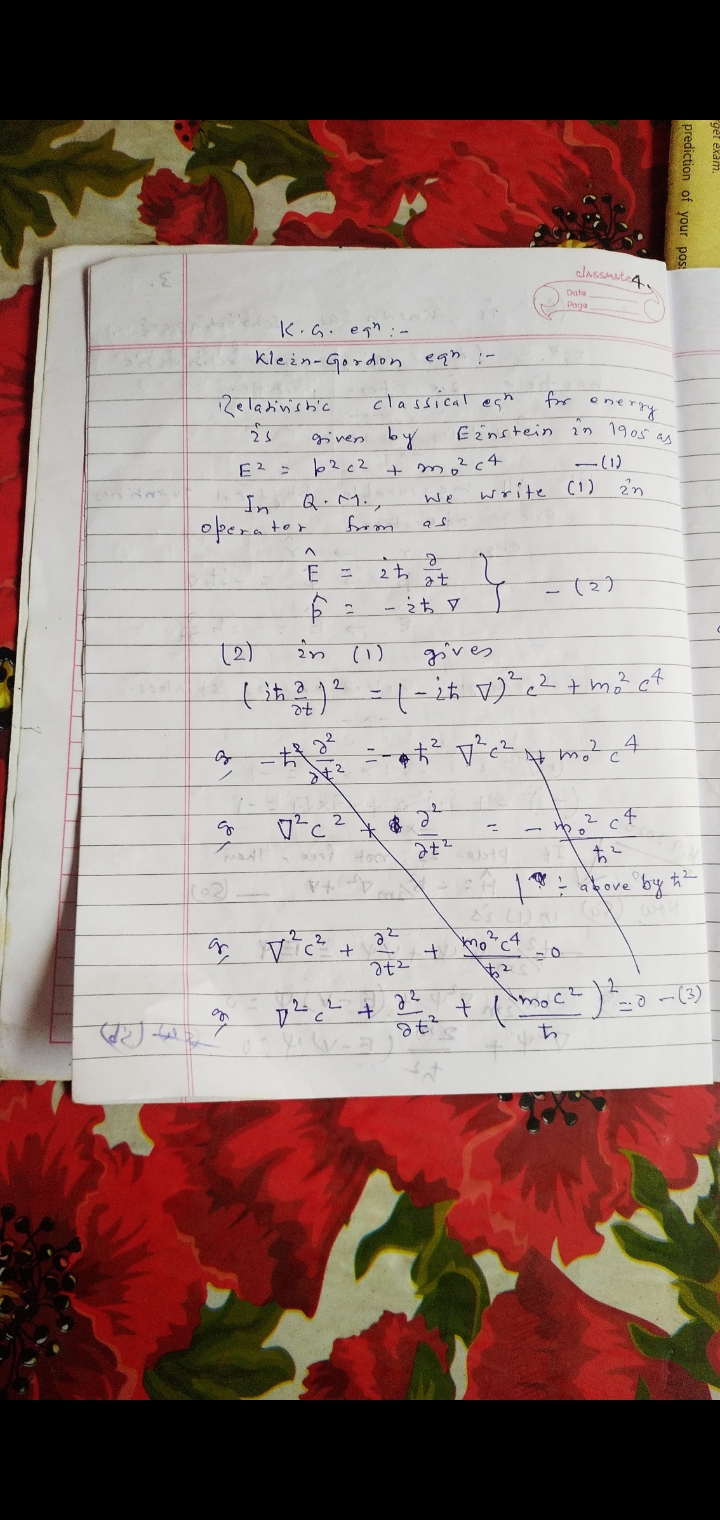 get exam.
prediction of your pos
classmate 4.
Date
Page
K.G. eqⁿ :-
Klein-Gordon eqⁿ :-
Relativistic classical eqⁿ for energy
is given by Einstein in 1905 as
E² = p²c² + m₀²c⁴ —(1)
In Q.M., we write (1) in
operator from as
Ê = iħ ∂/∂t
p̂ = -iħ ∇ } - (2)
(2) in (1) gives
(iħ ∂/∂t)² = (-iħ ∇)² c² + m₀² c⁴
or, -ħ² ∂²/∂t² = -ħ² ∇²c² + m₀² c⁴
or, ∇²c² + ∂²/∂t² = - m₀² c⁴/ħ²
| ÷ above by ħ²
or, ∇²c² + ∂²/∂t² + m₀²c⁴/ħ² = 0
or, ∇²c² + ∂²/∂t² + (m₀c²/ħ)² = 0 - (3)